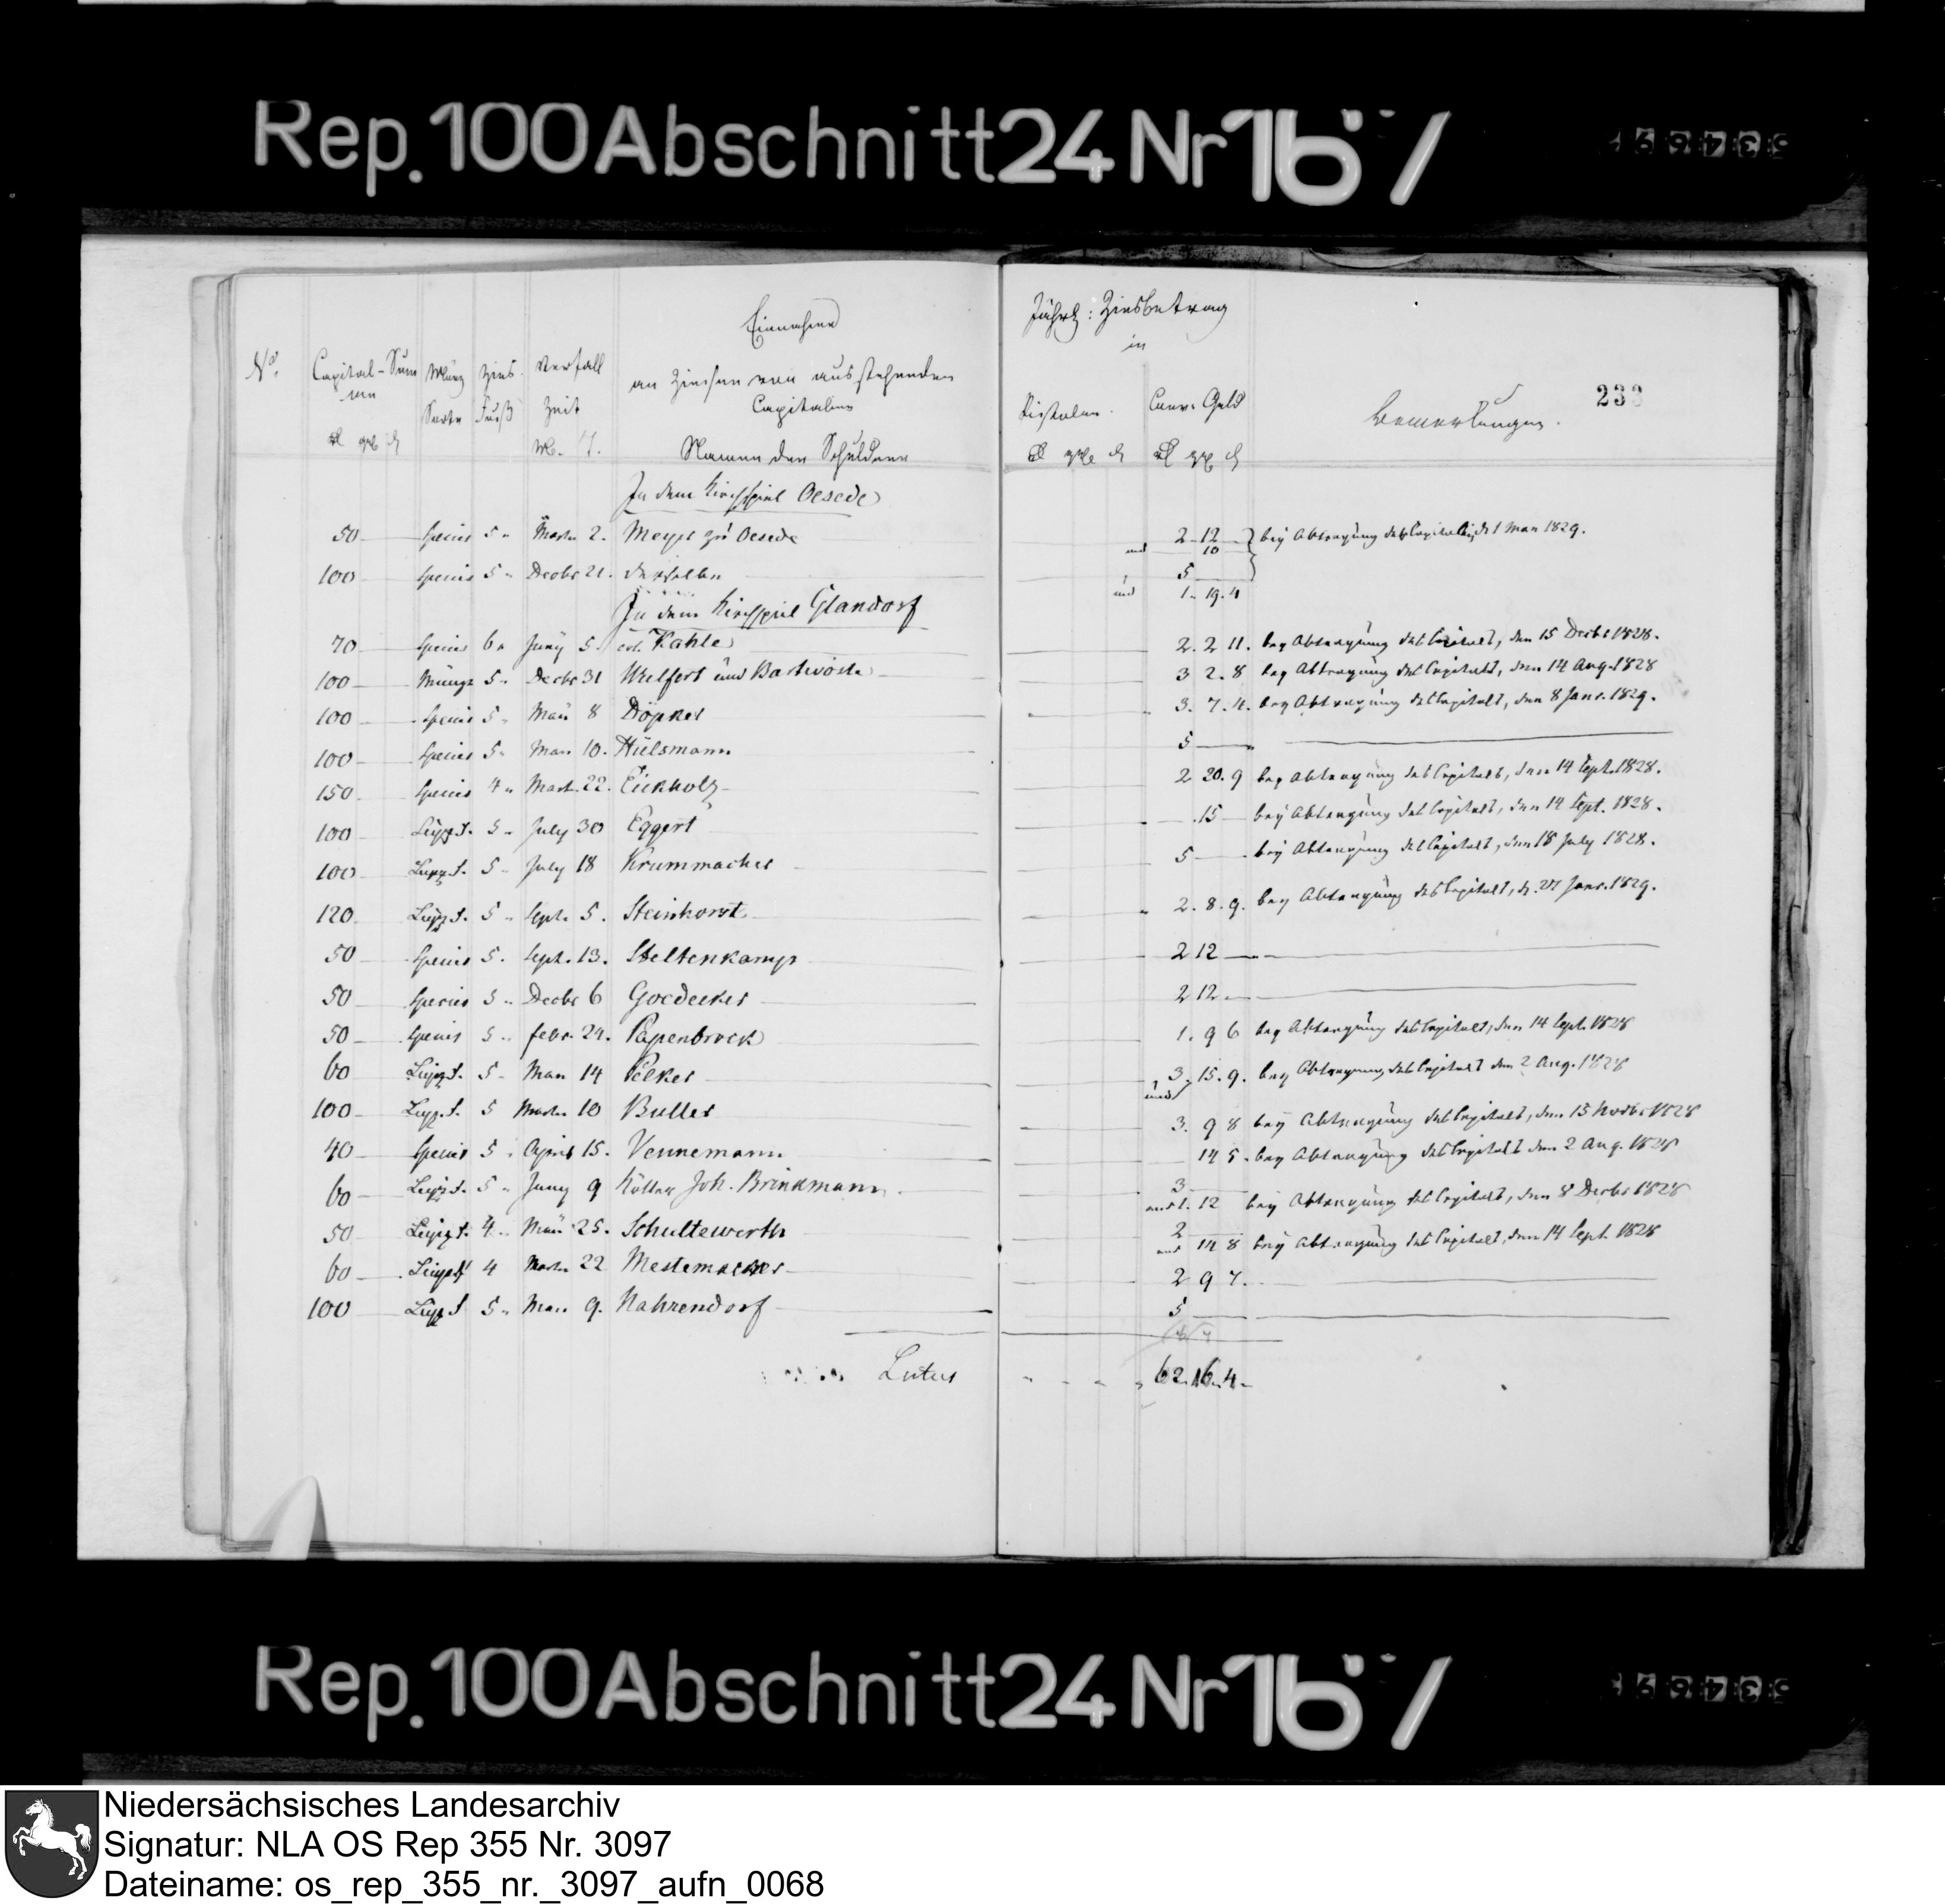 Rep. 100 Abschnitt 24 Nr 167
Einnahme
an Zinsen von ausstehenden
Capitalien
Namen der Schuldner
No.
Capital-Summen
Münz Sorte
Zins Fuß
Verfall Zeit
Jährl: Zinsbetrag
in
Pistolen.
Conv. Geld
Bemerkungen.
233
In dem Kirchspiel Oesede
50 Species 5 Martz 2. Meyer zu Oesede 2 12 bey Abtragung des Capitals, d 1 Man 1829.
und 10
100 Species 5 Decbr 21. derselbe 5
und 1. 19. 4
In dem Kirchspiel Glandorf
70 Species 6 Juny 5. Kahle 2. 2 11. bey Abtragung des Capitals, den 15 Decbr 1828.
100 Münze 5 Decbr 31 Welfert und Bartwöste 3 2. 8 bey Abtragung des Capitals, den 14 Aug. 1828
100 Species 5 May 8 Döpker 3. 7. 4. bey Abtragung des Capitals, den 8 Janr. 1829.
100 Species 5 May 10. Hülsmann 5
150 Species 4 Martz 22. Eickholz 2 20. 9 bey Abtragung des Capitals, den 14 Sept. 1828.
100 Leipz. 5 July 30 Eggert 15 bey Abtragung des Capitals, den 14 Sept. 1828.
100 Leipz. 5 July 18 Krummacher 5 bey Abtragung des Capitals, den 18 July 1828.
120 Leipz. 5 Sept. 5. Steinhorst 2. 8. 9. bey Abtragung des Capitals, d. 27 Janr. 1829.
50 Species 5. Sept. 13. Steltenkamp 2 12
50 Species 5 Decbr 6 Goedecker 2 12
50 Species 5 febr. 24. Papenbrock 1. 9 6 bey Abtragung des Capitals, den 14 Sept. 1828
60 Leipz. 5 May 14 Pelker 3. 15. 9. bey Abtragung des Capitals den 2 Aug. 1828
und
100 Leipz. 5 Martz 10 Buller 3. 9 8 bey Abtragung des Capitals, den 15 Novbr 1828
40 Species 5 April 15. Vennemann 14 5. bey Abtragung des Capitals den 2 Aug. 1828
60 Leipz. 5 Juny 9 Kötter Joh. Brinkmann 3
und 1. 12 bey Abtragung des Capitals, den 8 Decbr 1828
50 Leipz. 4 May 25. Schultewerth 2
und 14 8 bey Abtragung des Capitals, den 14 Sept. 1828
60 Leipz. 4 Martz 22 Mestemacher 2 9 7.
100 Leipz. 5 May 9. Nahrendorf 5
Latus 62. 16. 4
Rep. 100 Abschnitt 24 Nr 167
Niedersächsisches Landesarchiv
Signatur: NLA OS Rep 355 Nr. 3097
Dateiname: os_rep_355_nr._3097_aufn_0068